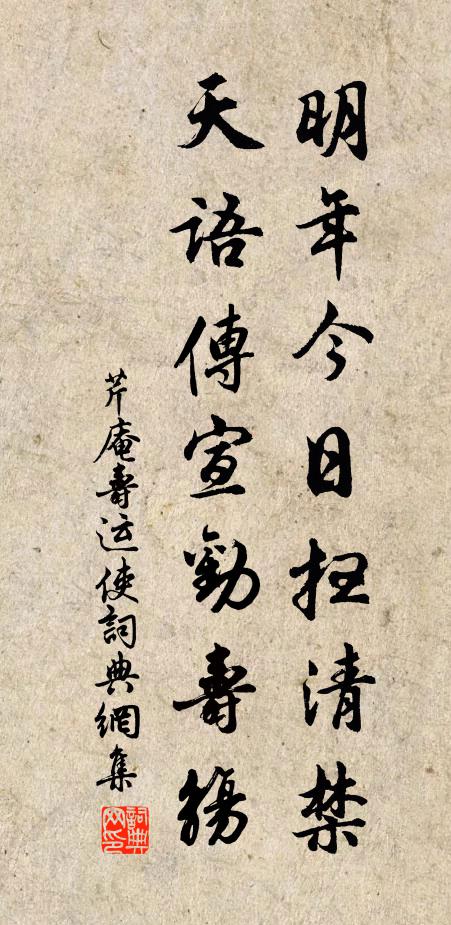 明年今日清禁
天語傳宣勸壽觴
芹庵壽运使詞典網集
詞典网印